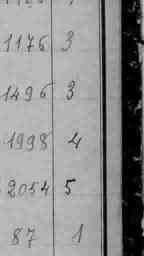 1176 3
1496 3
1998 4
2054 5
87 1